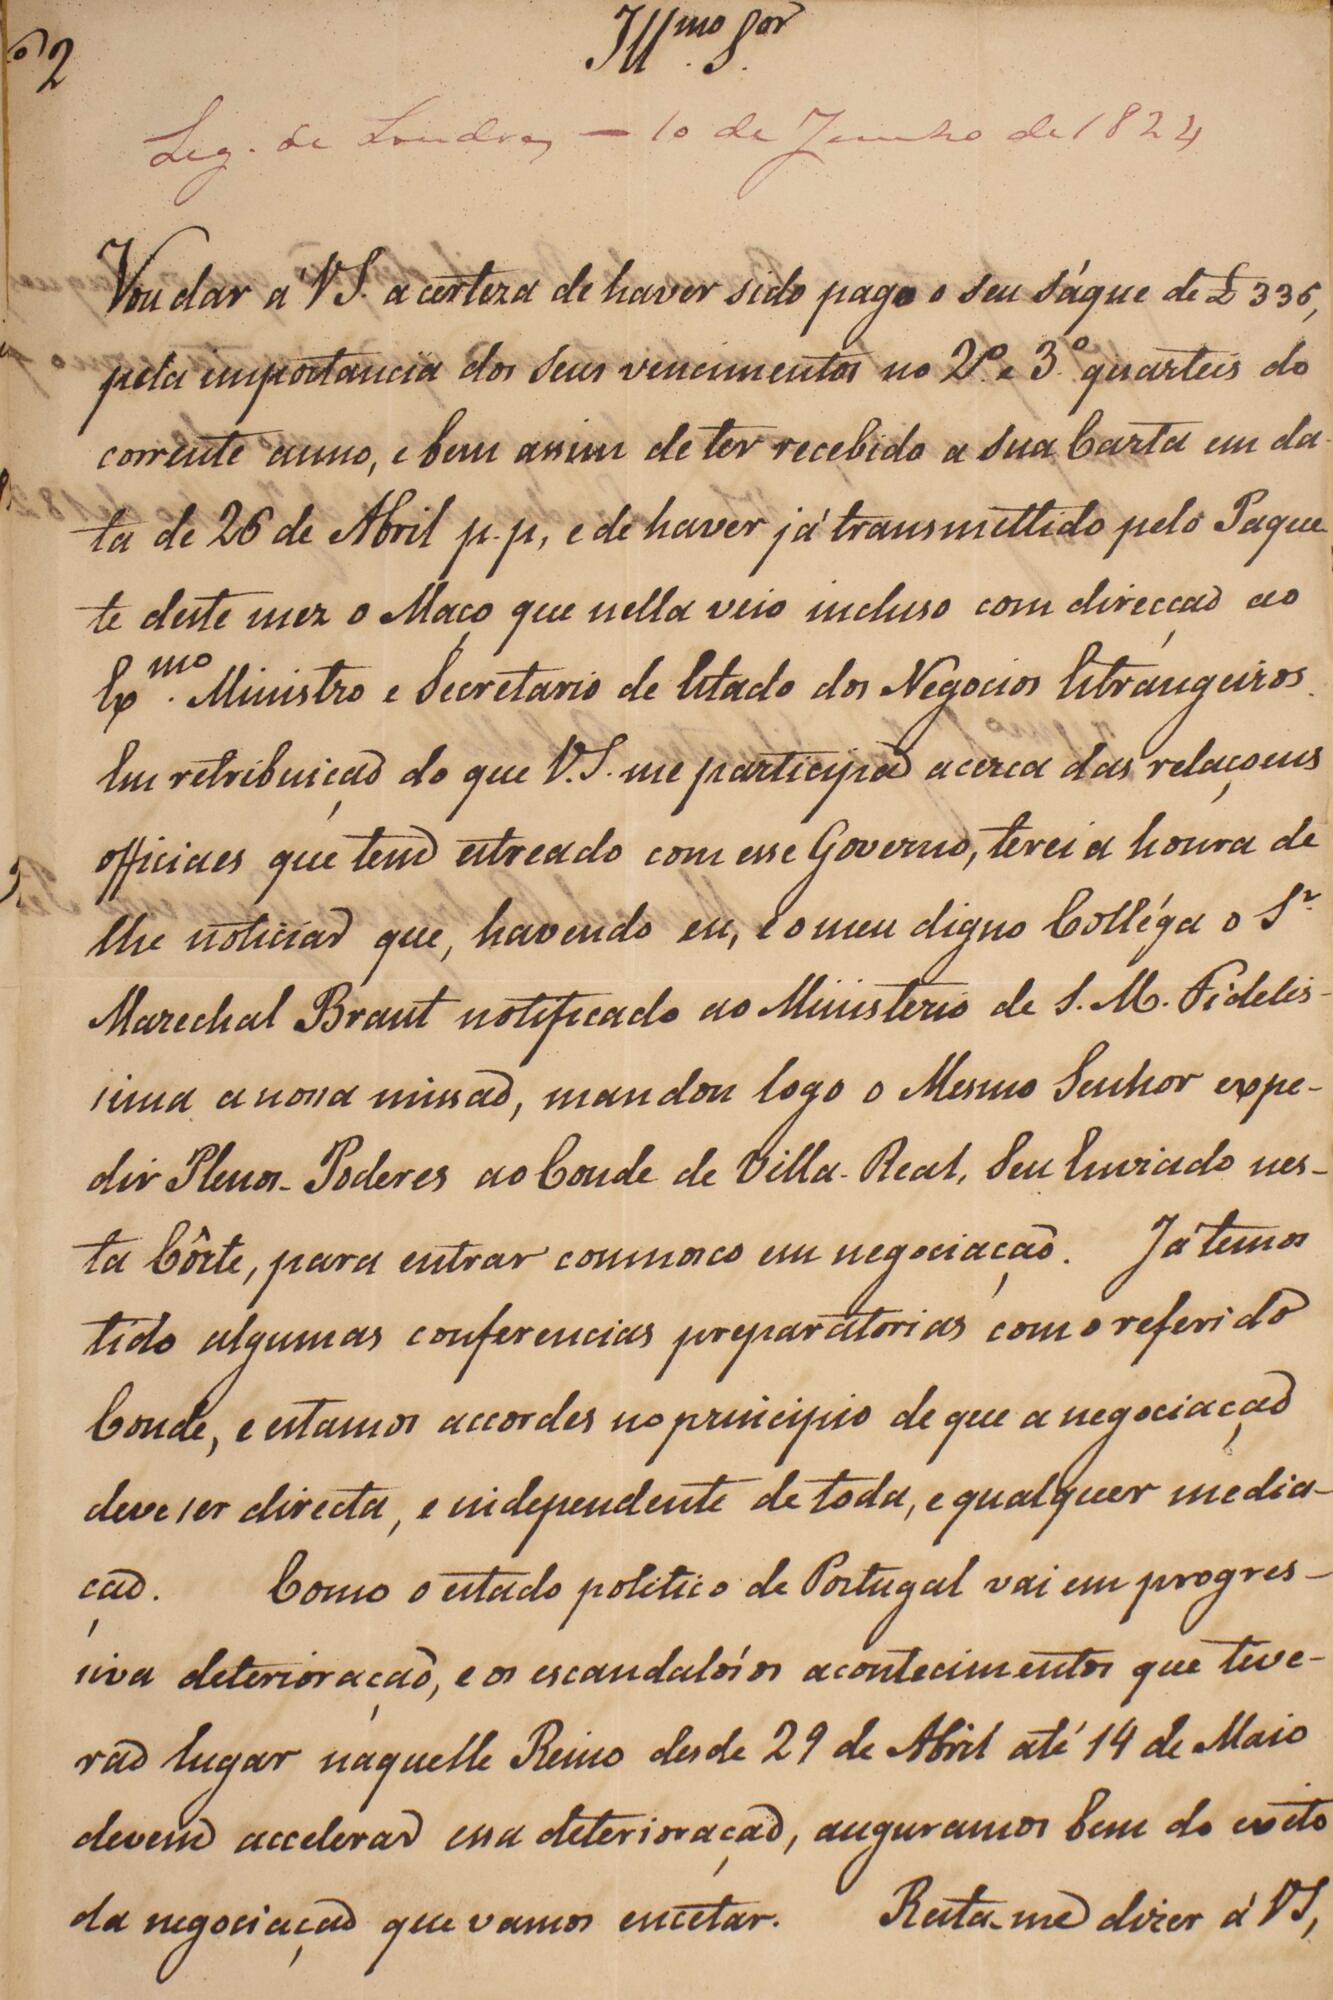 Nº 2
Illmo. Sor.
Leg. de Londres — 10 de Junho de 1824
Vou dar a' VS. a certeza de haver sido pago o seu sáque de £ 336,
pela importancia dos Seus vencimentos no 2º. e 3º. quarteis do
corrente anno, e bem assim de ter recebido a sua Carta em da-
ta de 26 de Abril p.p, e de haver já transmettido pelo Paque-
te deste mez o Maço que nella veio incluso com direcçaõ ao
Exmo. Ministro e Secretario de Estado dos Negocios Estrangeiros.
Em retribuiçaõ do que V.S. me participa acerca das relaçoens
officiaes que tem estreado com esse Governo, terei a honra de
lhe noticiar que, havendo eu, e o meu digno Collega o Sr.
Marechal Brant notificado ao Ministerio de S. M. Fidelis-
sima a nossa missaõ, mandou logo o Mesmo Senhor expe-
dir Plenos-Poderes ao Conde de Villa-Real, Seu Enviado nes-
ta Côrte, para entrar comnosco em negociaçaõ. Já temos
tido algumas conferencias preparatorias com o referido
Conde, e estamos accordes no principio de que a negociaçaõ
deve ser directa, e independente de toda, e qualquer media-
çaõ. Como o estado politico de Portugal vai em progres-
siva deterioraçaõ, e os escandalósos acontecimentos que teve-
raõ lugar naquelle Reino desde 29 de Abril até 14 de Maio
devem accelerar essa deterioraçaõ, auguramos bem do exito
da negociaçaõ que vamos encetar. Resta-me dizer á VS,